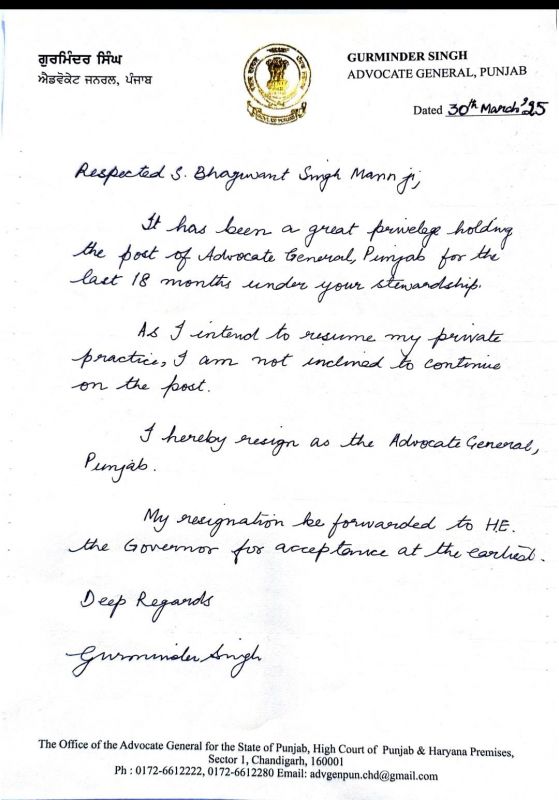 ਗੁਰਮਿੰਦਰ ਸਿੰਘ
ਐਡਵੋਕੇਟ ਜਨਰਲ, ਪੰਜਾਬ
GURMINDER SINGH
ADVOCATE GENERAL, PUNJAB
Dated 30th March'25
Respected S. Bhagwant Singh Mann ji,
It has been a great privelege holding
the post of Advocate General, Punjab for the
last 18 months under your stewardship.
As I intend to resume my private
practice, I am not inclined to continue
on the post.
I hereby resign as the Advocate General,
Punjab.
My resignation be forwarded to H.E.
the Governor for acceptance at the earliest.
Deep Regards
Gurminder Singh
The Office of the Advocate General for the State of Punjab, High Court of Punjab & Haryana Premises,
Sector 1, Chandigarh, 160001
Ph : 0172-6612222, 0172-6612280 Email: advgenpun.chd@gmail.com